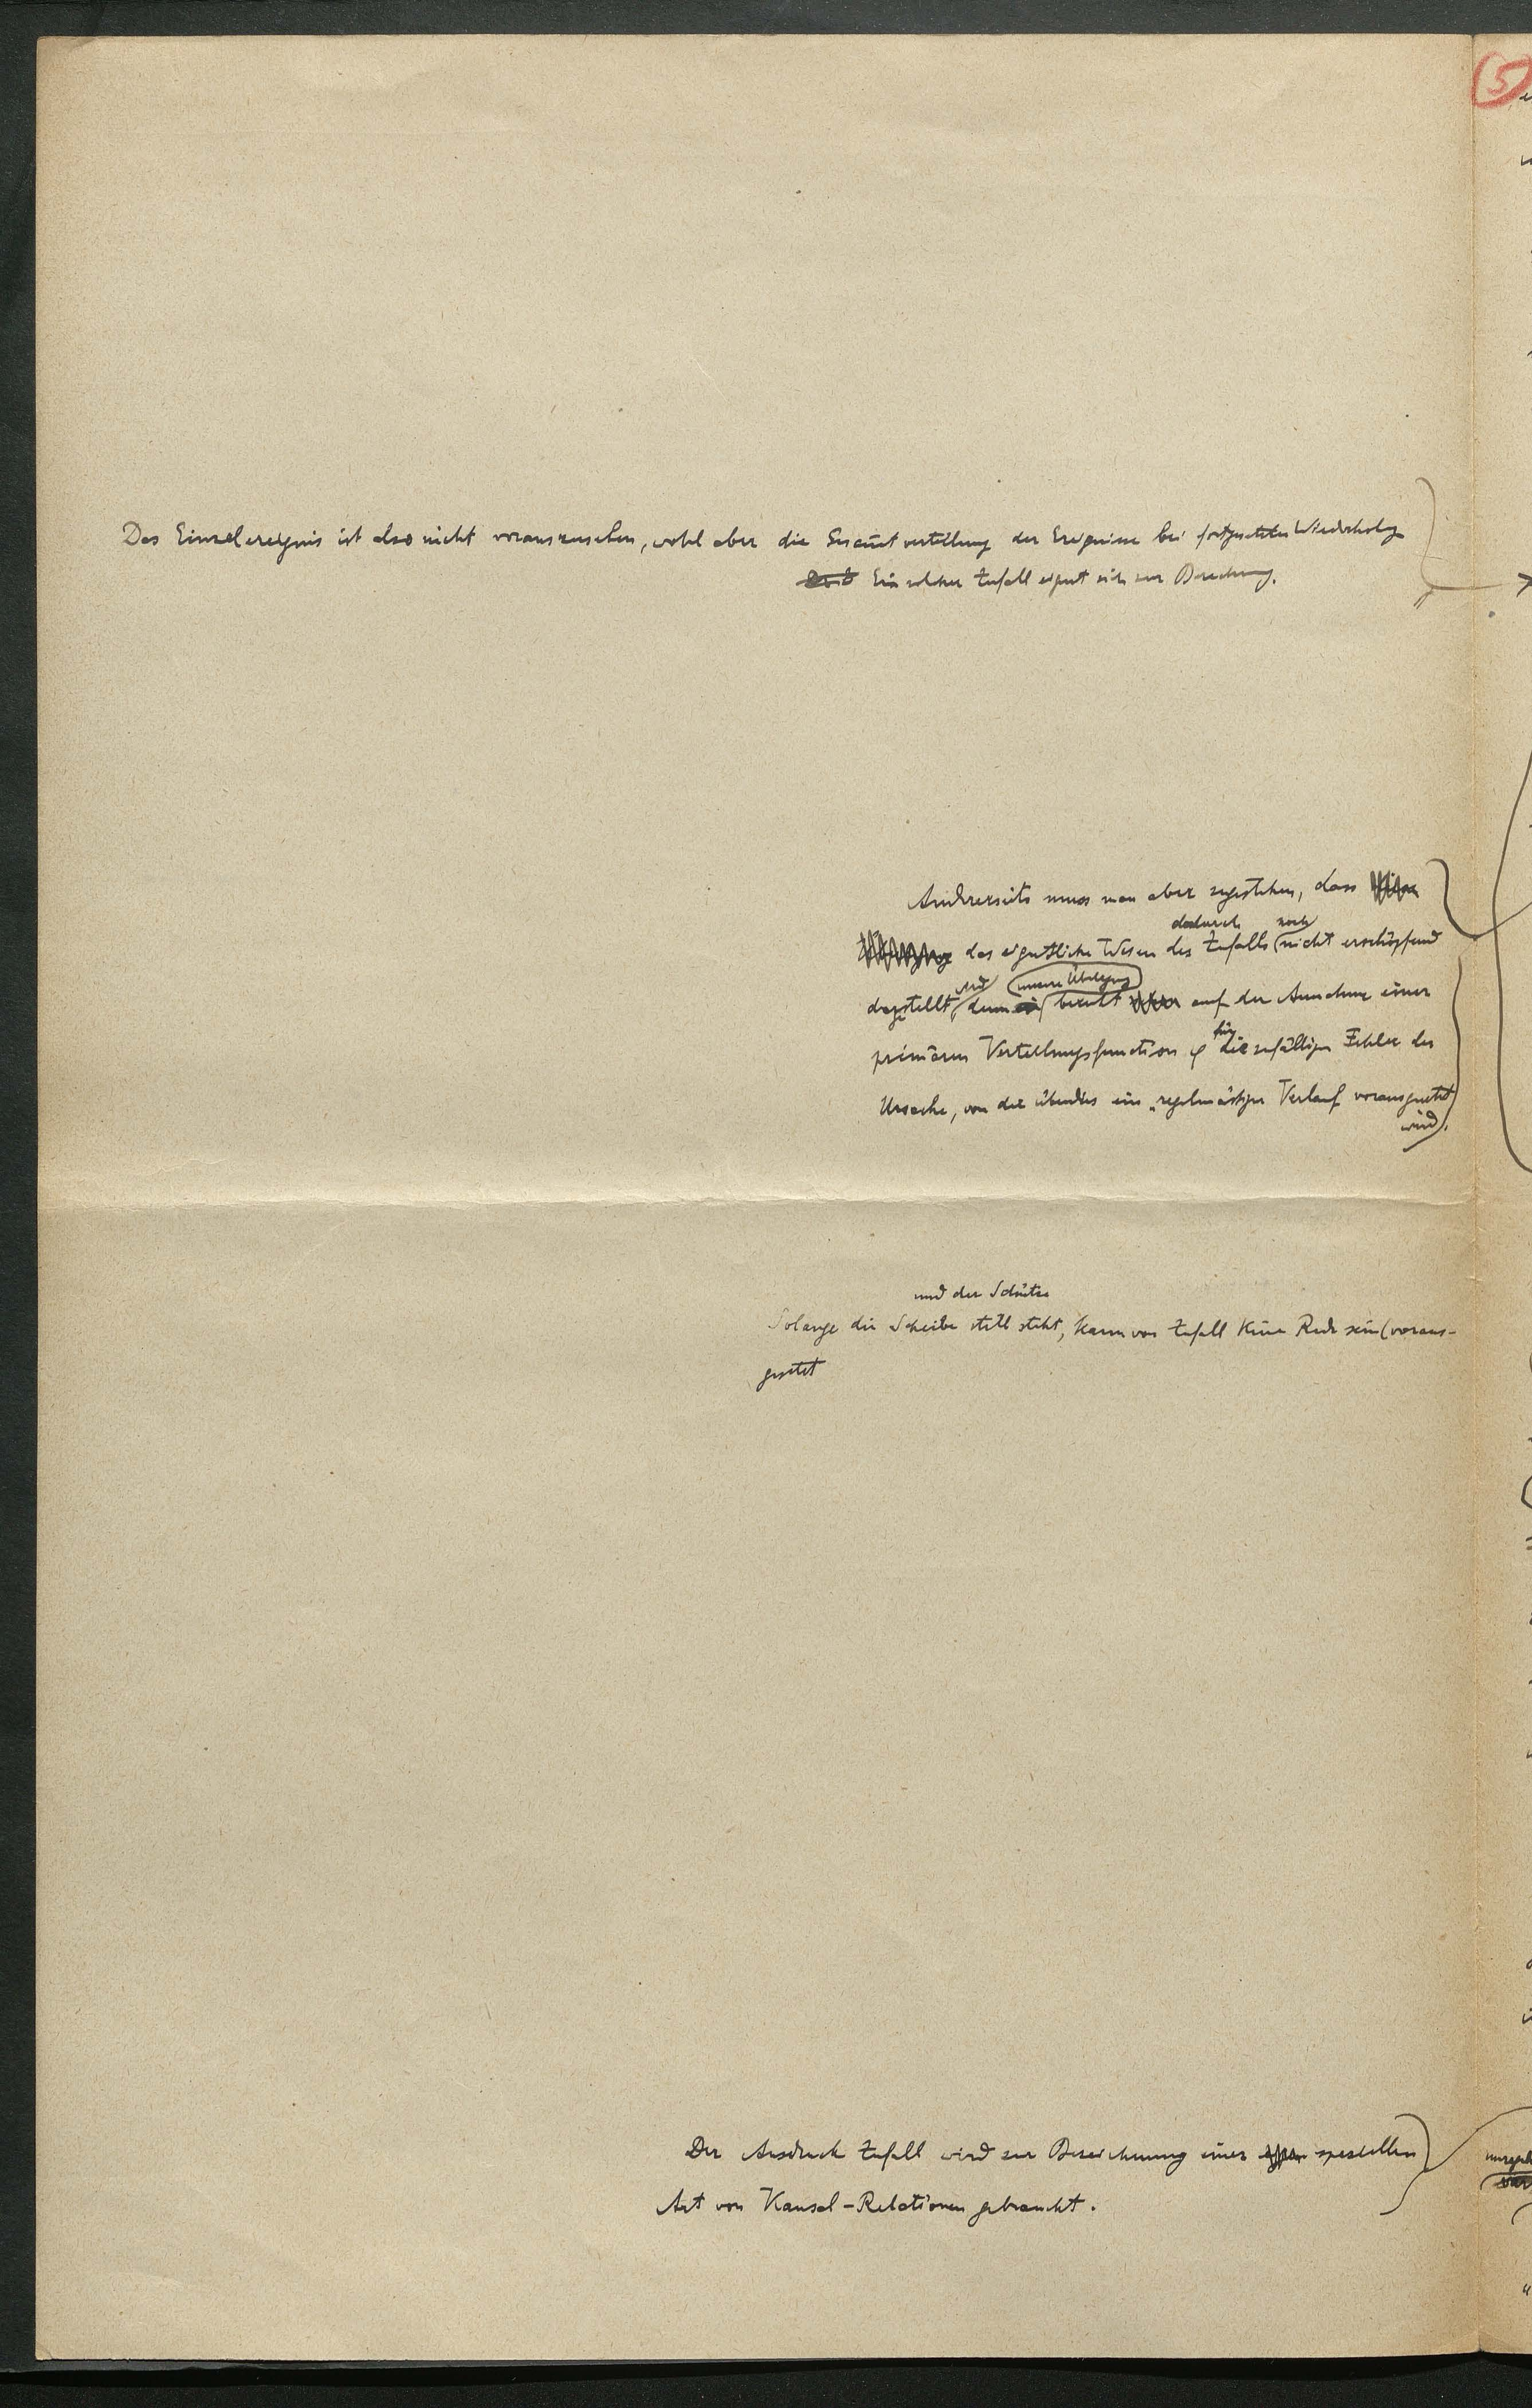 5
Das Einzelereignis ist also nicht vorauszusehen, wohl aber die Gesam̅tverteilung der Ereignisse bei fortgesetzten Wiederholg
Ein solcher Zufall eignet sich zur Berechnung.
Andrerseits muss man aber zugestehen, dass
dadurch noch
das eigentliche Wesen des Zufalls nicht erschöpfend
wird unsere Überlegung
dargestellt, denn beruht auf der Annahme einer
für
primären Verteilungsfunction φ die zufälligen Fehler der
Ursache, von der überdies ein „regelmässiger Verlauf vorausgesetzt
wird.
und der Schütze
Solange die Scheibe still steht, kann von Zufall keine Rede sein (voraus-
gesetzt
Der Ausdruck Zufall wird zur Bezeichnung einer speziellen
Art von Kausal-Relationen gebraucht.